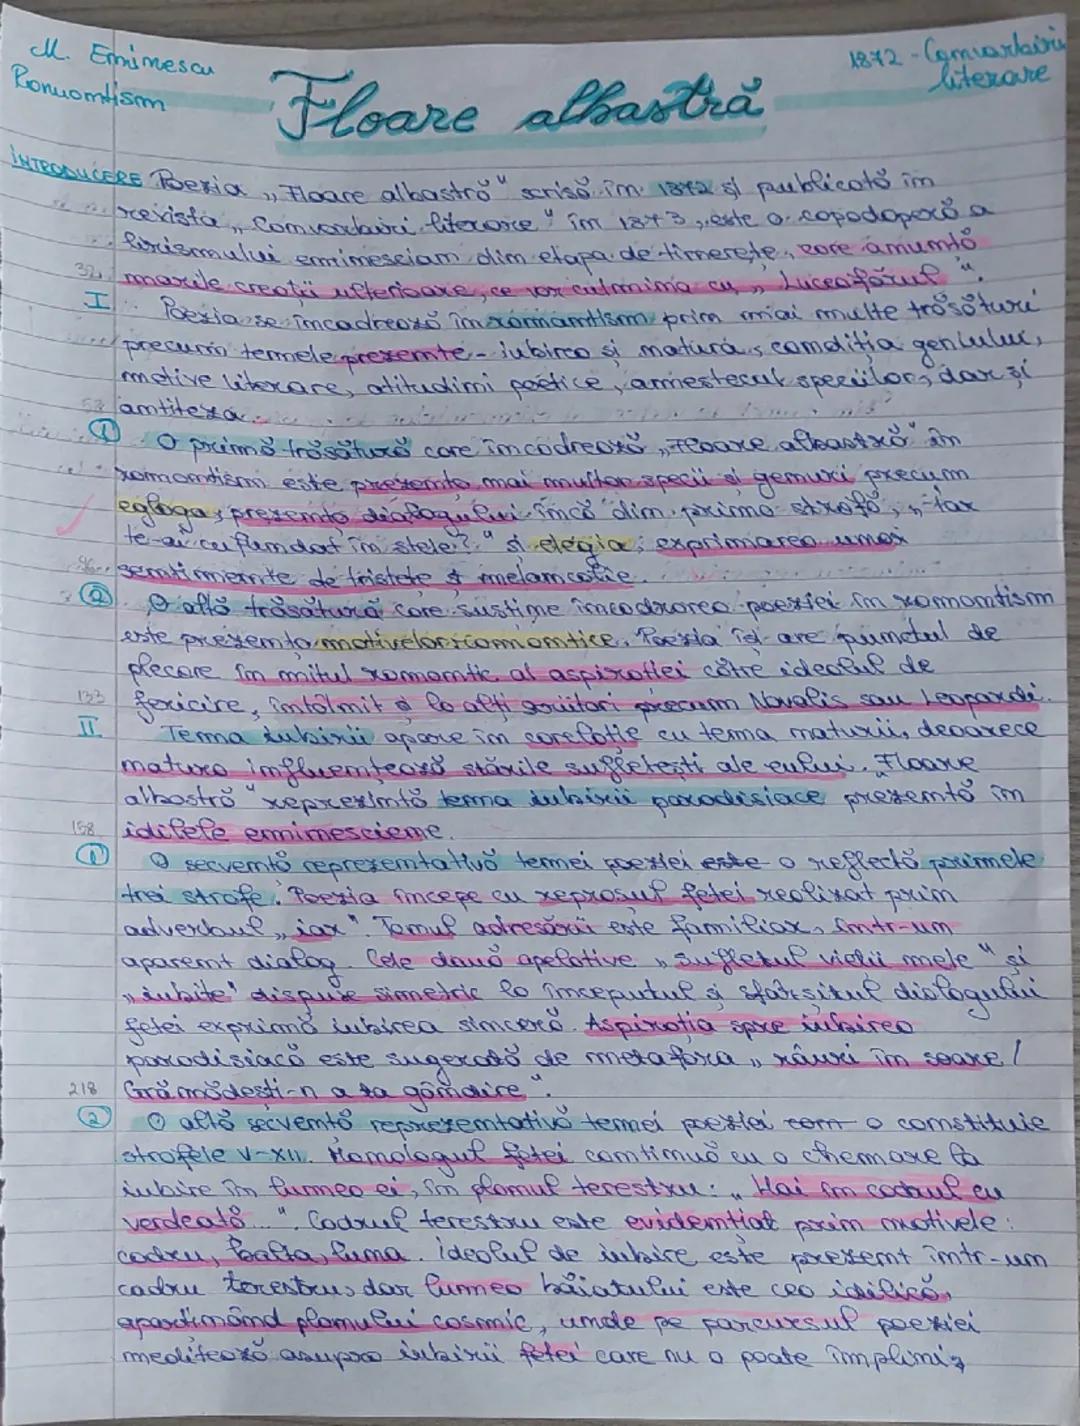 M. Eminescu
Romantism
1872 - Convorbiri
literare
Floare albastră
INTRODUCERE Poezia „Floare albastră" scrisă în 1872 și publicată în
revista „Convorbiri literare" în 1873, este o capodoperă a
lirismului eminescian din etapa de tinerețe, care anunță
32 marile creații ulterioare, ce vor culmina cu „Luceafărul".
I Poezia se încadrează în romantism prin mai multe trăsături
precum temele prezente - iubirea și natura, condiția geniului,
motive literare, atitudini poetice, amestecul speciilor, dar și
53 antiteza.
1 O primă trăsătură care încadrează „Floare albastră" în
romantism este prezența mai multor specii și genuri precum
egloga, prezența dialogului încă din prima strofă; „-Iar
te-ai cufundat în stele?" și elegia; exprimarea unor
96 sentimente de tristețe și melancolie.
2 O altă trăsătură care susține încadrarea poeziei în romantism
este prezența motivelor romantice. Poezia își are punctul de
plecare în mitul romantic al aspirației către idealul de
133 fericire, întâlnit și la alți scriitori precum Novalis sau Leopardi.
II Tema iubirii apare în corelație cu tema naturii, deoarece
natura influențează stările sufletești ale eului. „Floare
albastră" reprezintă tema iubirii paradisiace prezentă în
158 idilele eminesciene.
1 O secvență reprezentativă temei poeziei este o reflectă primele
trei strofe. Poezia începe cu reproșul fetei realizat prin
adverbul „iar". Tonul adresării este familiar, într-un
aparent dialog. Cele două apelative „sufletul vieții mele" și
„iubite" dispuse simetric la începutul și sfârșitul dialogului
fetei exprimă iubirea sinceră. Aspirația spre iubirea
paradisiacă este sugerată de metafora „râuri în soare /
218 Grămădești-n a ta gândire".
2 O altă secvență reprezentativă temei poeziei o constituie
strofele V-XII. Monologul fetei continuă cu o chemare la
iubire în lumea ei, în planul terestru: „Hai în codrul cu
verdeață...". Cadrul terestru este evidențiat prin motivele:
codru, balta, luna. Idealul de iubire este prezent într-un
cadru terestru, dar lumea băiatului este cea idilică,
aparținând planului cosmic, unde pe parcursul poeziei
meditează asupra iubirii fetei care nu o poate împlini;